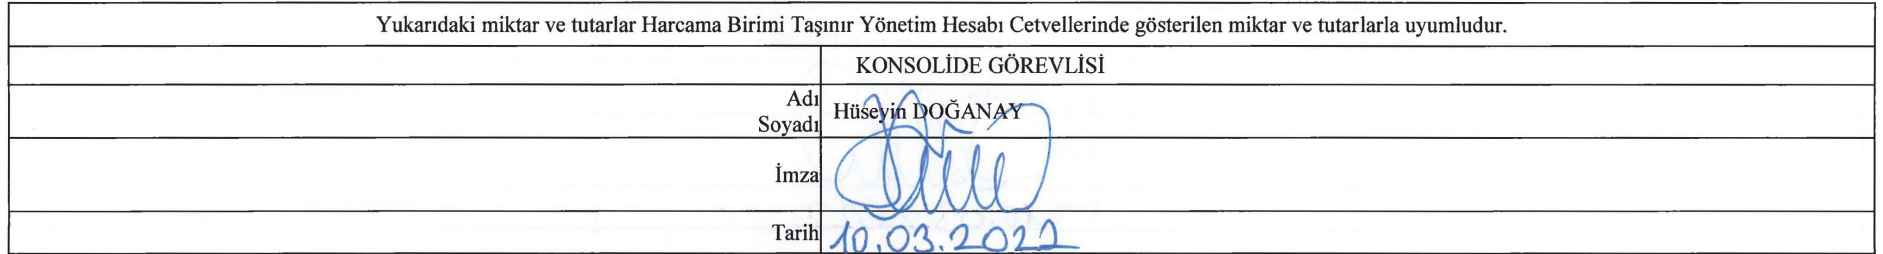 Yukarıdaki miktar ve tutarlar Harcama Birimi Taşınır Yönetim Hesabı Cetvellerinde gösterilen miktar ve tutarlarla uyumludur.
KONSOLİDE GÖREVLİSİ
Adı
Soyadı
Hüseyin DOĞANAY
İmza
Tarih
10.03.2022